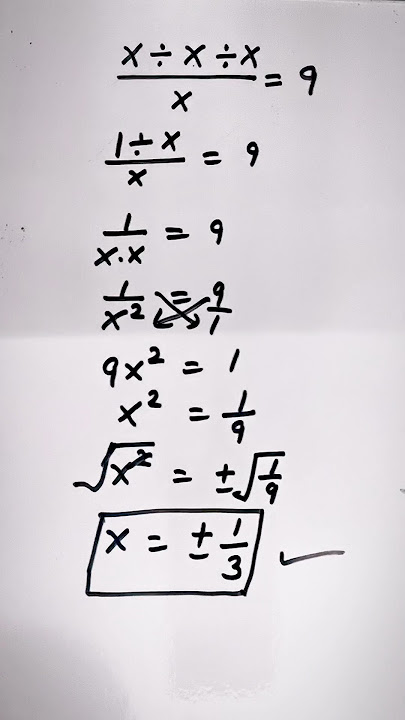 x ÷ x ÷ x / x = 9
1 ÷ x / x = 9
1 / x·x = 9
1 / x² = 9 / 1
9x² = 1
x² = 1 / 9
√x² = ± √1/9
x = ± 1/3 ✓